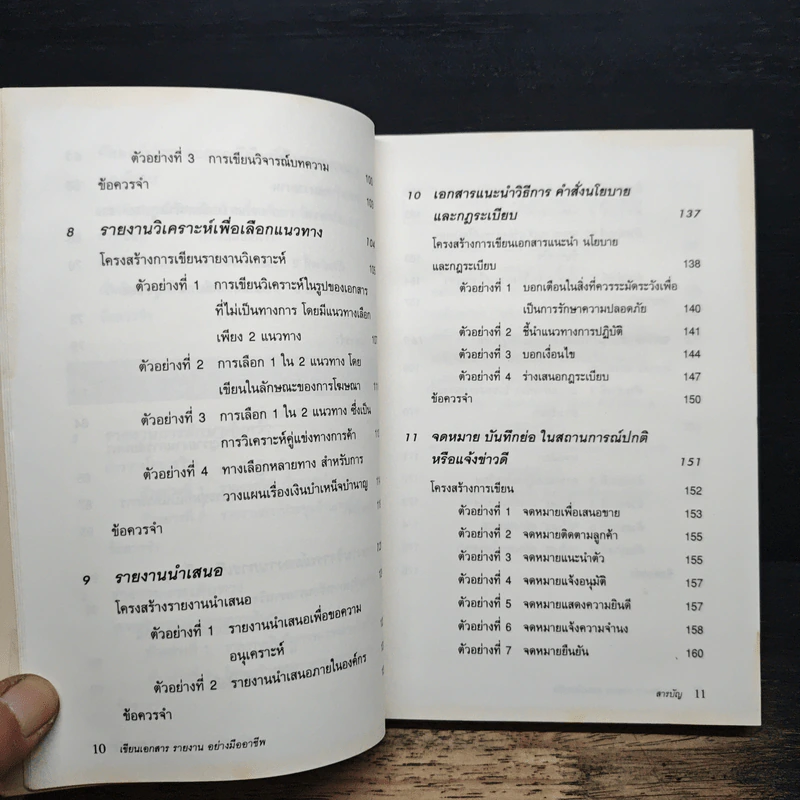 ตัวอย่างที่ 3 การเขียนวิจารณ์บทความ 100
ข้อควรจำ 103
8 รายงานวิเคราะห์เพื่อเลือกแนวทาง 104
โครงสร้างการเขียนรายงานวิเคราะห์ 105
ตัวอย่างที่ 1 การเขียนวิเคราะห์ในรูปของเอกสาร
ที่ไม่เป็นทางการ โดยมีแนวทางเลือก
เพียง 2 แนวทาง 107
ตัวอย่างที่ 2 การเลือก 1 ใน 2 แนวทาง โดย
เขียนในลักษณะของการโฆษณา
ตัวอย่างที่ 3 การเลือก 1 ใน 2 แนวทาง ซึ่งเป็น
การวิเคราะห์คู่แข่งทางการค้า
ตัวอย่างที่ 4 ทางเลือกหลายทาง สำหรับการ
วางแผนเรื่องเงินบำเหน็จบำนาญ
ข้อควรจำ
9 รายงานนำเสนอ
โครงสร้างรายงานนำเสนอ
ตัวอย่างที่ 1 รายงานนำเสนอเพื่อขอความ
อนุเคราะห์
ตัวอย่างที่ 2 รายงานนำเสนอภายในองค์กร
ข้อควรจำ
10 เขียนเอกสาร รายงาน อย่างมืออาชีพ
10 เอกสารแนะนำวิธีการ คำสั่งนโยบาย
และกฎระเบียบ 137
โครงสร้างการเขียนเอกสารแนะนำ นโยบาย
และกฎระเบียบ 138
ตัวอย่างที่ 1 บอกเตือนในสิ่งที่ควรระมัดระวังเพื่อ
เป็นการรักษาความปลอดภัย 140
ตัวอย่างที่ 2 ชี้นำแนวทางการปฏิบัติ 141
ตัวอย่างที่ 3 บอกเงื่อนไข 144
ตัวอย่างที่ 4 ร่างเสนอกฎระเบียบ 147
ข้อควรจำ 150
11 จดหมาย บันทึกย่อ ในสถานการณ์ปกติ
หรือแจ้งข่าวดี 151
โครงสร้างการเขียน 152
ตัวอย่างที่ 1 จดหมายเพื่อเสนอขาย 153
ตัวอย่างที่ 2 จดหมายติดตามลูกค้า 155
ตัวอย่างที่ 3 จดหมายแนะนำตัว 155
ตัวอย่างที่ 4 จดหมายแจ้งอนุมัติ 157
ตัวอย่างที่ 5 จดหมายแสดงความยินดี 157
ตัวอย่างที่ 6 จดหมายแจ้งความจำนง 158
ตัวอย่างที่ 7 จดหมายยืนยัน 160
สารบัญ 11